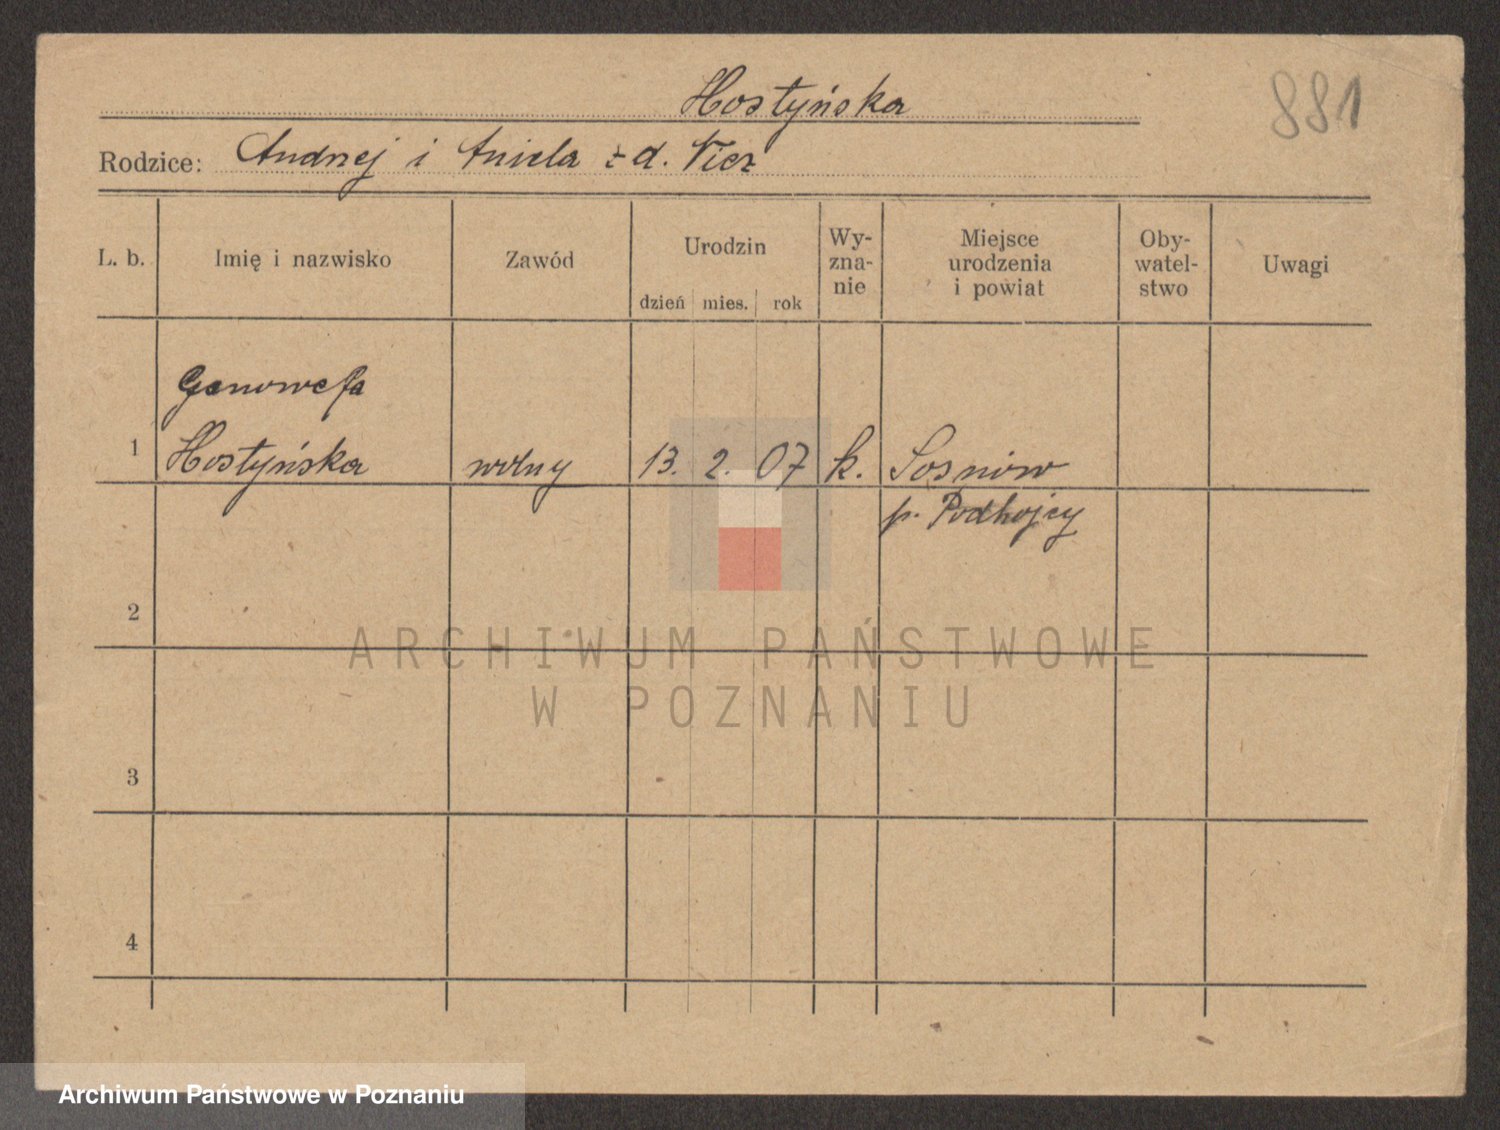 Hostyńska
881
Rodzice: Andrzej i Aniela z d.
L. b. Imię i nazwisko Zawód Urodzin dzień mies. rok Wy-zna-nie Miejsce urodzenia i powiat Oby-watel-stwo Uwagi
Genowefa
1 Hostyńska wolny 13. 2. 07 k. Sosnów
p. Podhajcy
2
ARCHIWUM PAŃSTWOWE
W POZNANIU
3
4
Archiwum Państwowe w Poznaniu